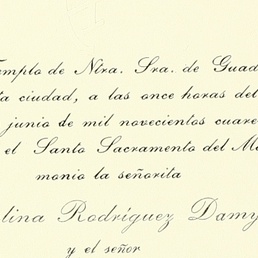 Templo de Ntra. Sra. de Guad
ta ciudad, a las once horas del
junio de mil novecientos cuare
el Santo Sacramento del Ma
monio la señorita
lina Rodríguez Damy
y el señor